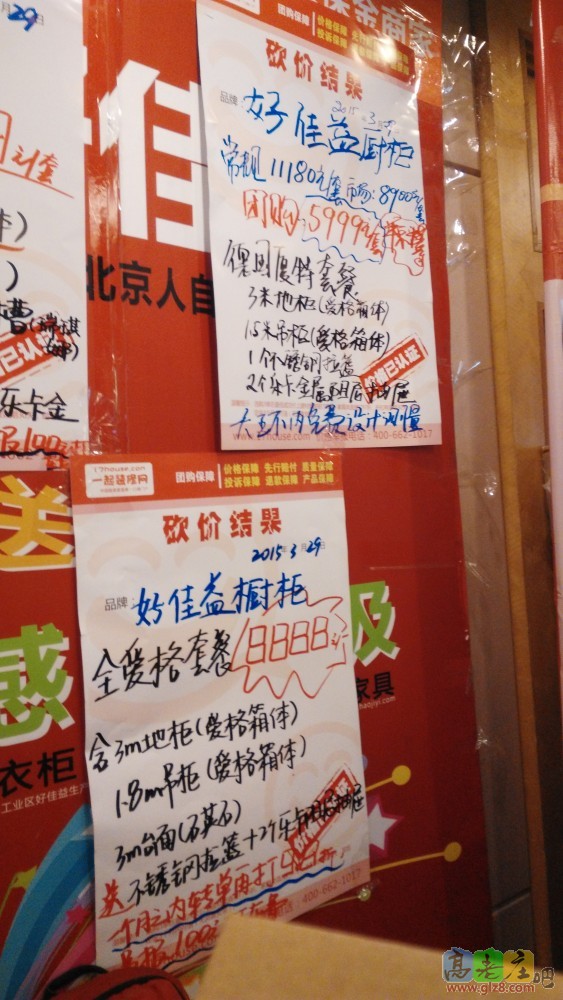 保金商家
团购保障 价格保障 先行
投诉保障 退款保障
砍价结果
2015 3
品牌: 好佳益厨柜
常规 11180元/套 市场: 8900元/套
团购: 5999元/套
套餐
3米地柜(爱格箱体)
1.5米吊柜(爱格箱体)
1个不锈钢拉篮
价格已认证
大五环内免费设计测量
400-662-1017
月29日
佳
北京人自
元/套
乐卡金
已认证
送
感
级
衣柜
家具
baojiyi.com
工业区好佳益生产
17house.com
一起装修网
团购保障 价格保障 先行赔付 质量保障
投诉保障 退款保障 产品保障
砍价结果
2015年3月29日
品牌: 好佳益橱柜
全爱格套餐 8888元
含3m地柜(爱格箱体)
1.8m吊柜(爱格箱体)
3m台面(石英石)
送 不锈钢拉篮+2个乐卡
一个月之内转单再打
400-662-1017
高老庄吧
www.glz8.com